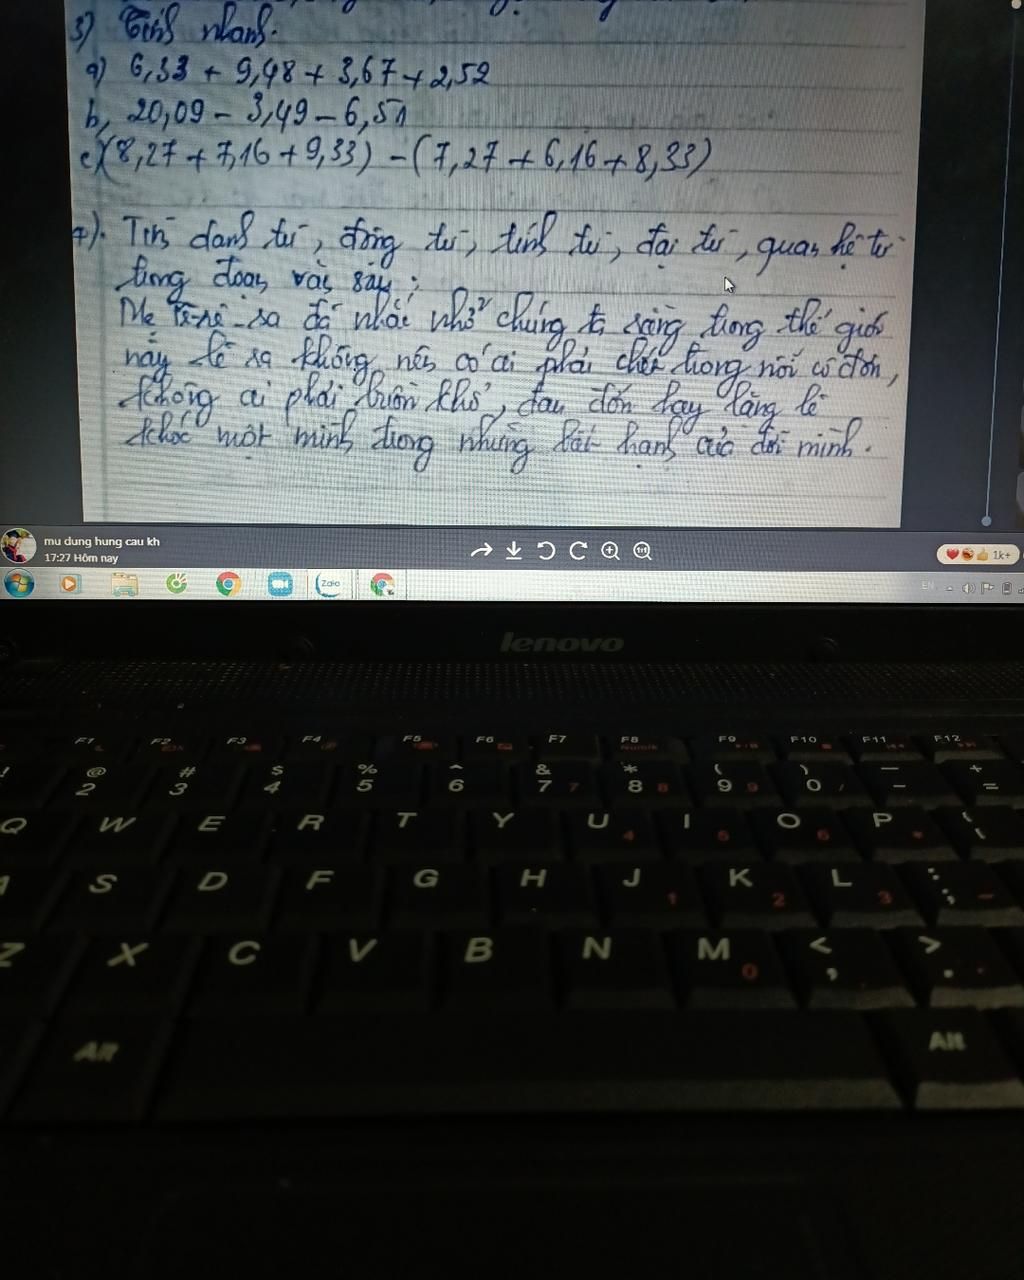 3) Tính nhanh.
a) 6,33 + 9,48 + 3,67 + 2,52
b, 20,09 - 3,49 - 6,51
c) (8,27 + 7,16 + 9,33) - (7,27 + 6,16 + 8,33)
4). Tìm danh từ, động từ, tính từ, đại từ, quan hệ từ
trong đoạn văn sau:
Mẹ Tê-rê-sa đã nhắc nhở chúng ta rằng trong thế giới
này lẽ ra không nên có ai phải chết trong nỗi cô đơn,
không ai phải buồn khổ, đau đớn hay lặng lẽ
khóc một mình trong những bất hạnh của đời mình.
mu dung hung cau kh
17:27 Hôm nay
1:1
1k+
Zalo
EN
lenovo
F1 F2 F3 F4 F5 F6 F7 F8 F9 F10 F11 F12
NumLk
! @ # $ % ^ & * ( ) — +
2 3 4 5 6 7 7 8 8 9 9 0 / - =
Q W E R T Y U 4 I 5 O 6 P * {
[
S D F G H J 1 K 2 L 3 : ; -
Z X C V B N M 0 < , > . .
Alt Alt